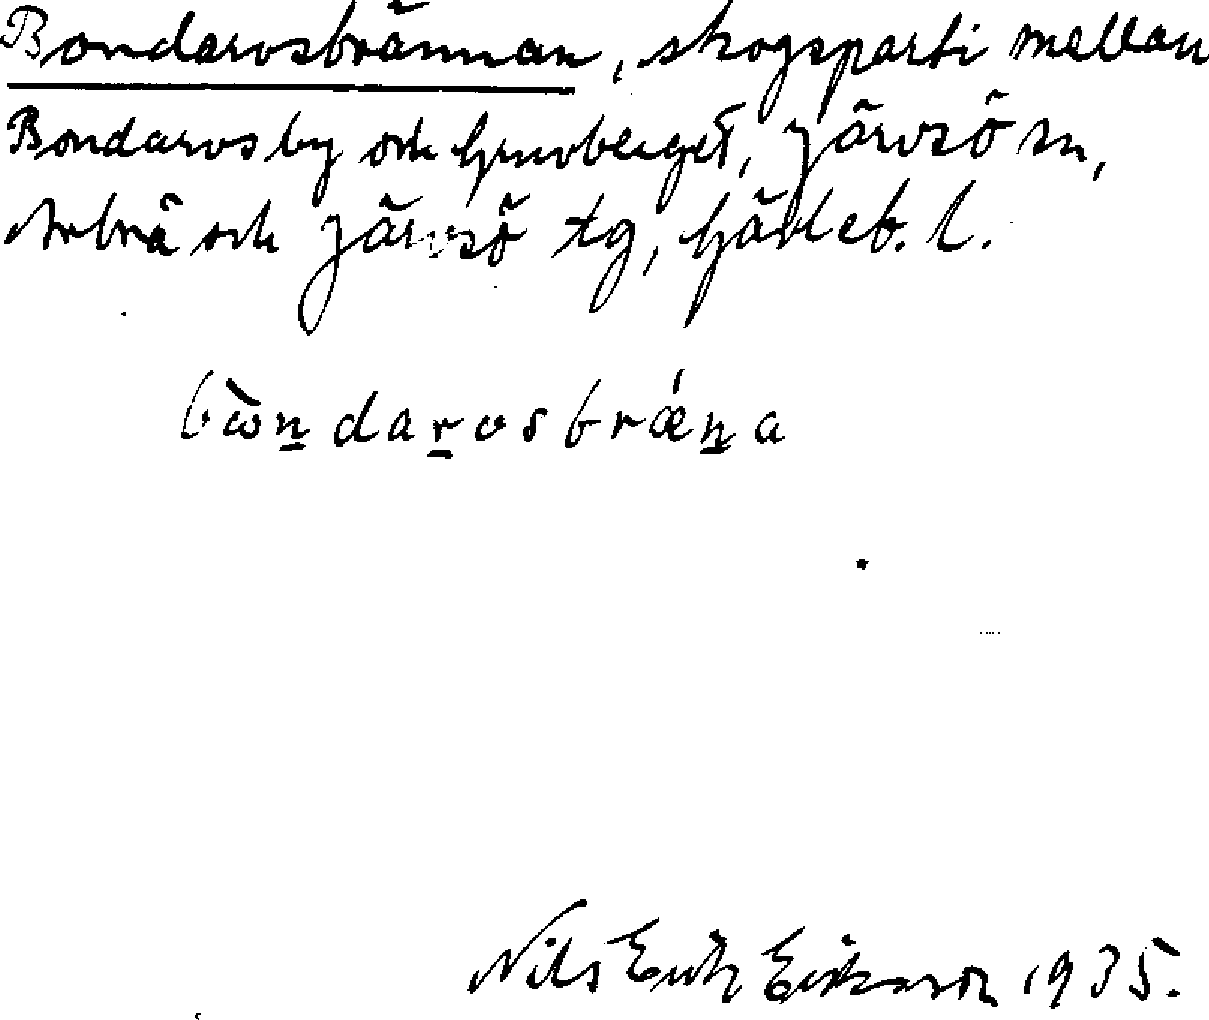 Bondarosbrännan, skogsparti mellan
Bondaros by och Gruvberget, Järvsö sn,
Arbrå och Järvsö tg, Gävleb. l.
bὼn̲dar̲osbrǽn̲a
Nils Erik Eriksson 1935.